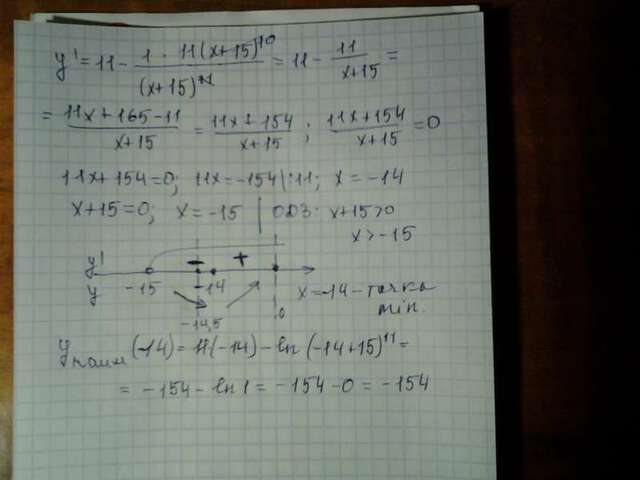 y' = 11 - 1 · 11(x+15)^10 / (x+15)^11 = 11 - 11 / x+15 =
= 11x + 165 - 11 / x+15 = 11x + 154 / x+15 ; 11x+154 / x+15 = 0
11x + 154 = 0; 11x = -154 |:11; x = -14
x+15 = 0; x = -15 | ОДЗ: x+15>0
x > -15
y' - +
y -15 -14 x = -14 - точка
-14,5 0 min.
y наим (-14) = 11(-14) - ln (-14+15)^11 =
= -154 - ln 1 = -154 - 0 = -154